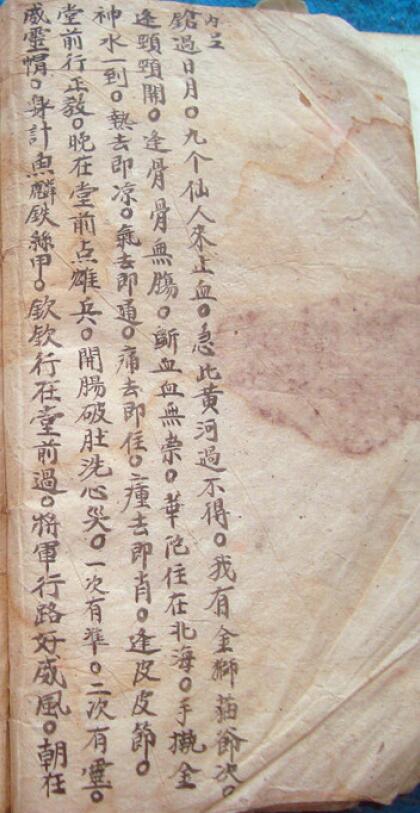 威靈帽。身計魚麟鉄絲甲。欽欽行在堂前過。將軍行路好威風。朝在
堂前行正教。晚在堂前点雄兵。開腸破肚洗心災。一次有準。二次有靈。
神水一到。熱去即凉。氣去即通。痛去即住。瘇去即肖。逢皮皮節。
逢頸頸開。逢骨骨無膓。斷血血無祟。華佗住在北海。手攙金
鎗過日月。九个仙人來止血。急此黄河過不得。我有金獅猫爺次。